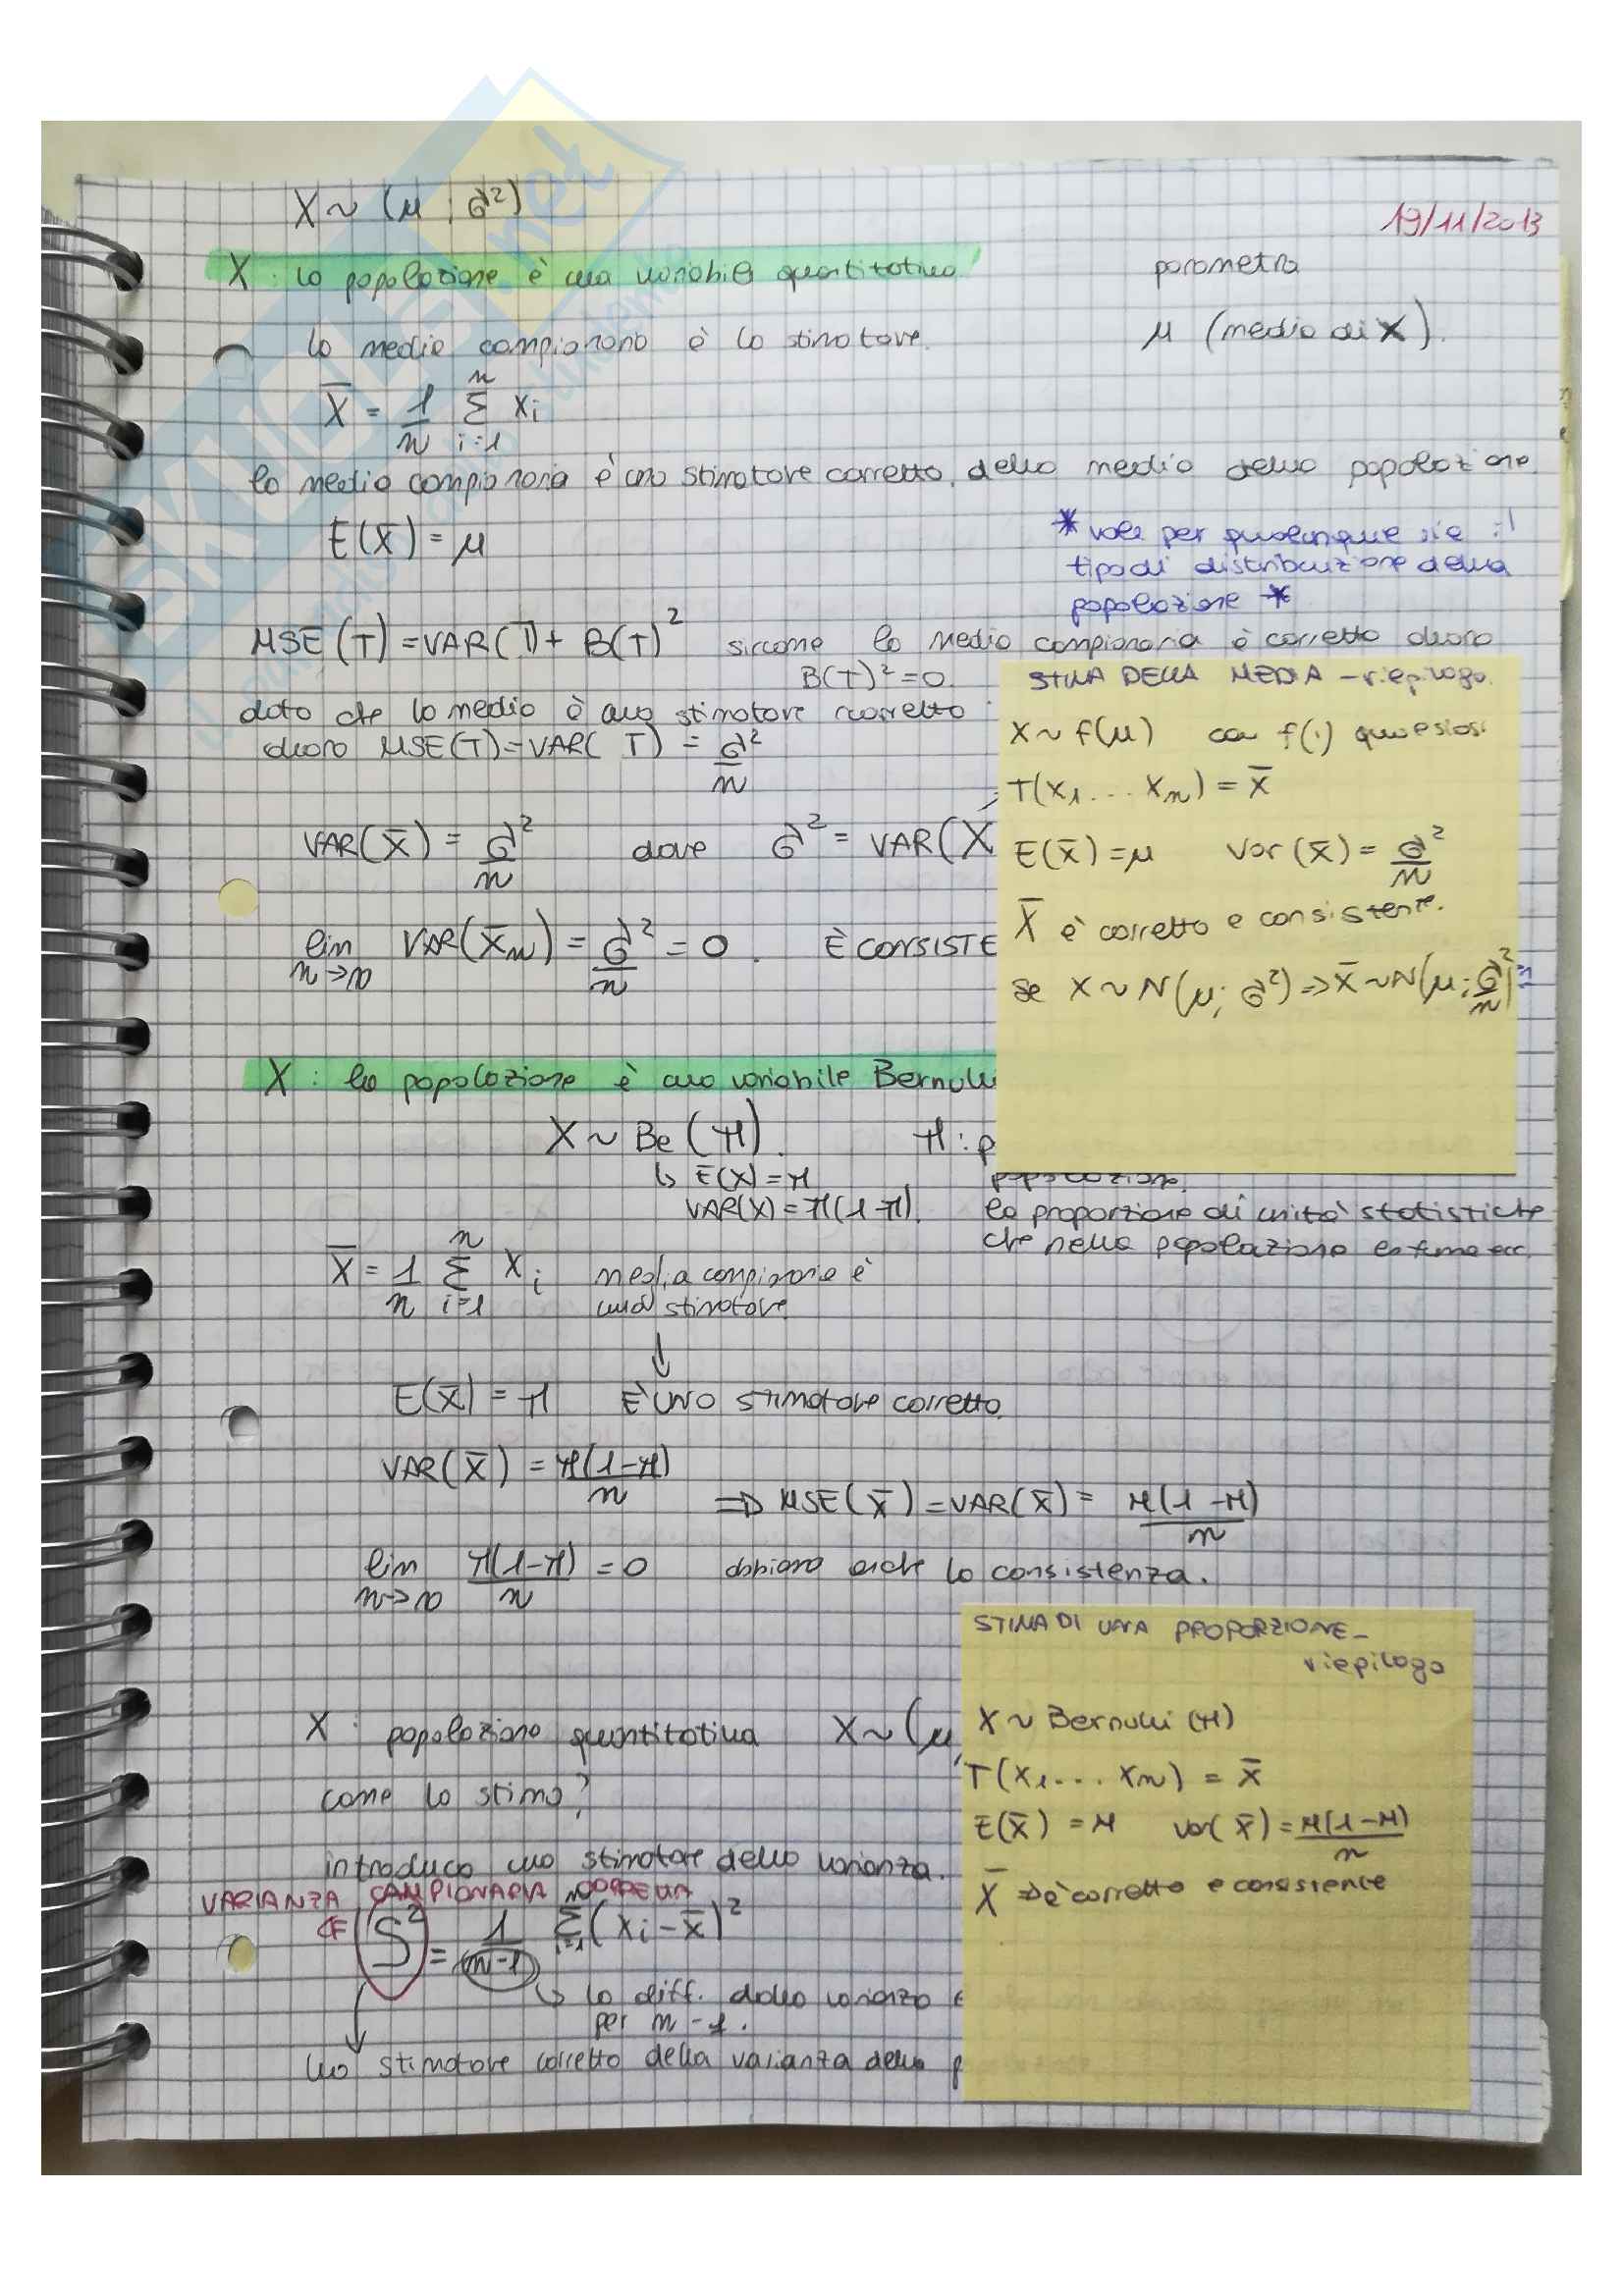 X ~ (μ ; σ²)
19/11/2013
X : la popolazione è una variabile quantitativa
parametro
la media campionaria è lo stimatore.
μ (media di X).
X̄ = 1/n Σ i=1 n xi
la media campionaria è uno stimatore corretto, della media della popolazione.
E(X̄) = μ
* vale per qualunque sia il
tipo di distribuzione della
popolazione *
MSE (T) = VAR(T) + B(T)² siccome la media campionaria è corretta allora
B(T)² = 0.
dato che la media è uno stimatore corretto
allora MSE(T) = VAR( T) = σ²/n
VAR(X̄) = σ²/n dove σ² = VAR(X
lim n→∞ VAR(X̄n) = σ²/n = 0. È CONSISTE
STIMA DELLA MEDIA - riepilogo.
X ~ f(μ) con f(·) qualsiasi
T(X1 ... Xn) = X̄
E(X̄) = μ Var(X̄) = σ²/n
X̄ è corretto e consistente.
se X ~ N(μ; σ²) => X̄ ~ N(μ; σ²/n)
X : la popolazione è una variabile Bernulli
X ~ Be (π). π : p
↳ E(X) = π
popolazione.
VAR(X) = π(1-π). la proporzione di unità statistiche
che nella popolazione è fuma ecc.
X̄ = 1/n Σ i=1 n Xi media campionaria è
uno stimatore
↓
E(X̄) = π È UNO stimatore corretto.
VAR(X̄) = π(1-π)/n
=> MSE(X̄) = VAR(X̄) = π(1-π)/n
lim n→∞ π(1-π)/n = 0 abbiamo anche la consistenza.
STIMA DI UNA PROPORZIONE -
riepilogo
X ~ Bernulli (π)
T(X1 ... Xn) = X̄
E(X̄) = π Var(X̄) = π(1-π)/n
X̄ => è corretto e consistente
X : popolazione quantitativa X ~ (μ,
come lo stimo?
introduco uno stimatore della varianza.
VARIANZA CAMPIONARIA CORRETTA
S² = 1/n-1 Σ i=1 n (xi - x̄)²
↳ la diff. dalla varianza è
per n-1.
uno stimatore corretto della varianza della p